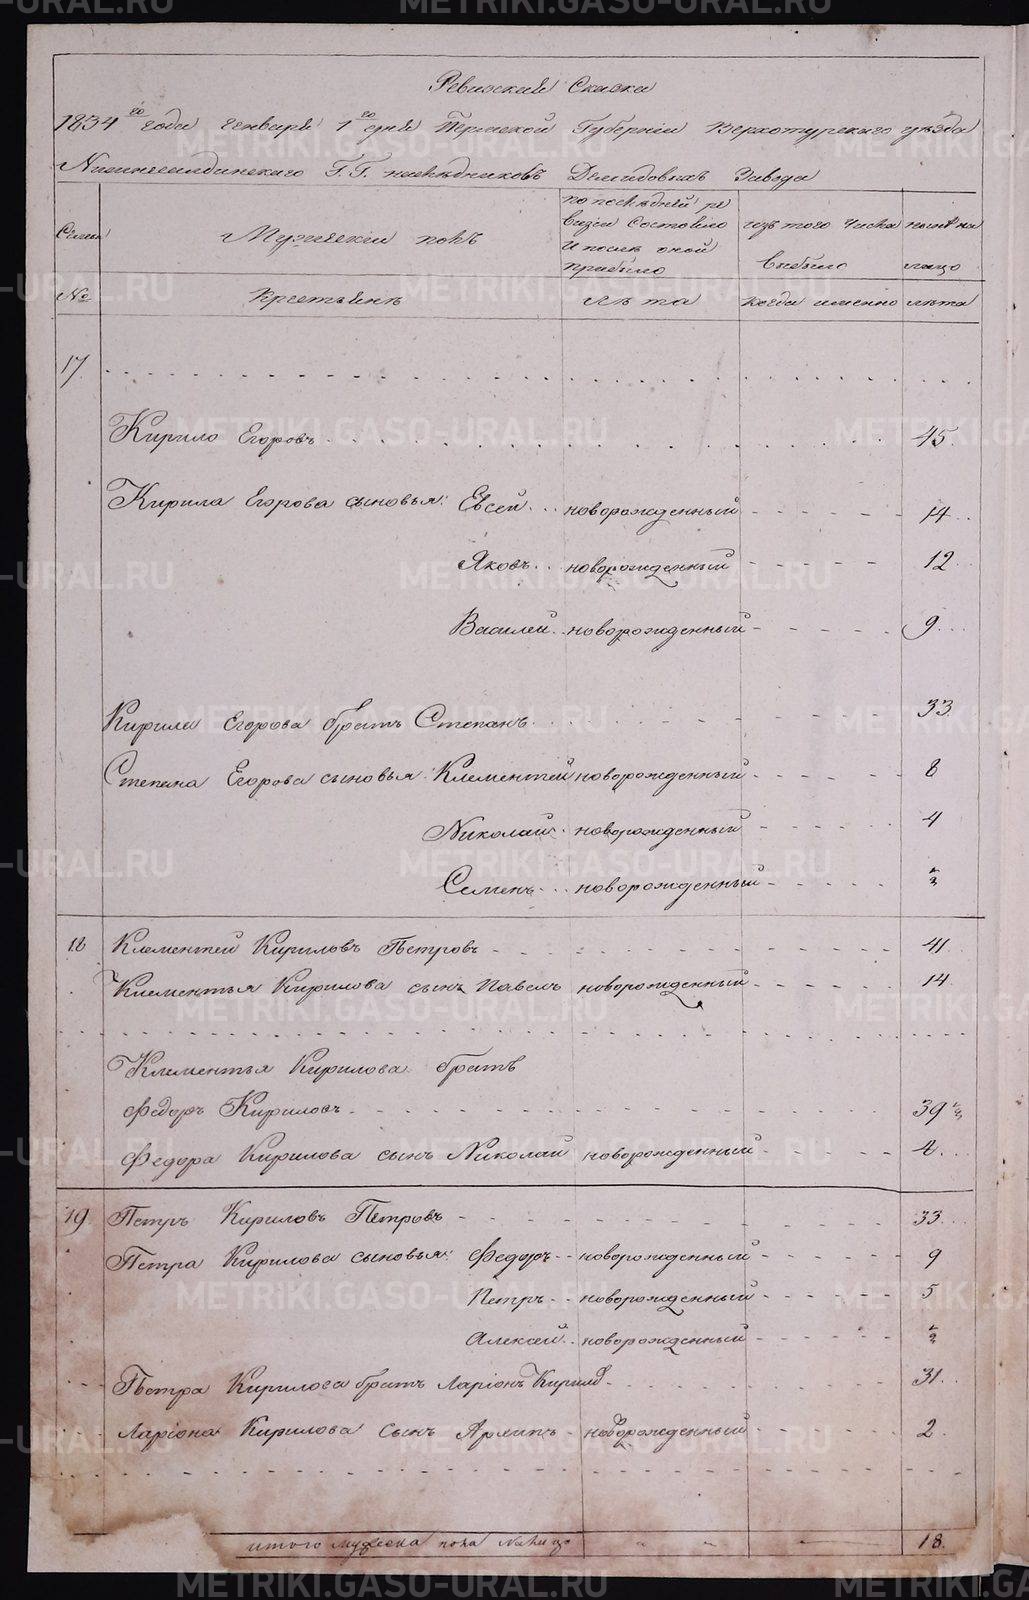 Ревизская Сказка
1834го года Генваря 1го дня Пермской Губернiи Верхотурскаго уѣзда
Нижнесалдинскаго Г.Г. наслѣдниковъ Демидовыхъ Завода
Семьи
Мужескiй полъ
по последней ре
визiи Состояло
и после оной
прибыло
изъ того числа
выбыло
ныне на
лицо
№
Крестьянъ
лѣта
когда именно
лѣта
17
Кирило Егоровъ 45
Кирила Егорова сыновья: Евсей новорожденный 14
Яковъ новорожденный 12
Василей новорожденный 9
Кирила Егорова братъ Степанъ 33
Степана Егорова сыновья: Клементей новорожденный 8
Николай новорожденный 4
Семенъ новорожденный ½
18 Клементей Кириловъ Петровъ 41
Клементья Кирилова сынъ Павелъ новорожденный 14
Клементья Кирилова братъ
Федоръ Кириловъ 39½
Федора Кирилова сынъ Николай новорожденный 4
19 Петръ Кириловъ Петровъ 33
Петра Кирилова сыновья: Федоръ новорожденный 9
Петръ новорожденный 5
Алексей новорожденный ½
Петра Кирилова братъ Ларiонъ Кирилов 31
Ларiона Кирилова сынъ Архипъ новорожденный 2
итого мужеска пола на лицо 18
METRIKI.GASO-URAL.RU